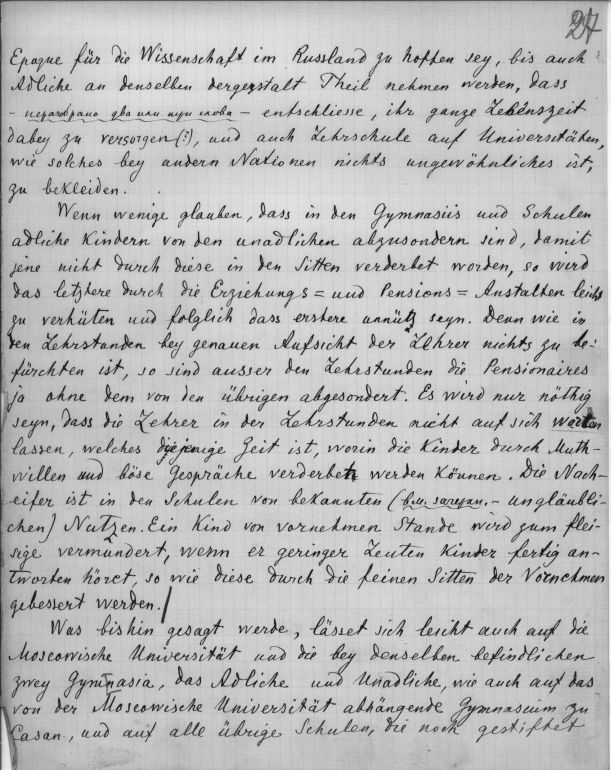 27
Epoque für die Wissenschaft im Russland zu hoffen sey, bis auch
Adliche an denselben dergestalt Theil nehmen werden, dass
- неразобрано два или три слова - entschliesse, ihr ganze Lebenszeit
dabey zu versorgen (?), und auch Lehrschule auf Universitäten,
wie solches bey andern Nationen nichts ungewöhnliches ist,
zu bekleiden.
Wenn wenige glauben, dass in den Gymnasiis und Schulen
adliche Kindern von den unadlichen abzusondern sind, damit
jene nicht durch diese in den Sitten verderbet worden, so wird
das letztere durch die Erziehungs = und Pensions = Anstalten leicht
zu verhüten und folglich dass erstere unnütz seyn. Denn wie in
den Lehrstanden bey genauen Aufsicht der Lehrer nichts zu be-
fürchten ist, so sind ausser den Lehrstunden die Pensionaires
ja ohne dem von den übrigen abgesondert. Es wird nur nöthig
seyn, dass die Lehrer in der Lehrstunden nicht auf sich warten
lassen, welches diejenige Zeit ist, worin die Kinder durch Muth-
willen und böse Gespräche verderbet werden können. Die Nach-
eifer ist in den Schulen von bekannten (вм. зачеркн. - unglaubli-
chen) Nutzen. Ein Kind von vornehmen Stande wird zum flei-
sige vermundert, wenn er geringer Leuten Kinder fertig an-
tworten höret, so wie diese durch die feinen Sitten der Vornehmen
gebessert werden./
Was bishin gesagt werde, lässet sich leicht auch auf die
Moscowische Universität und die bey denselben befindlichen
zwey Gymnasia, das Adliche und Unadliche, wie auch auf das
von der Moscowische Universität abhängende Gymnasium zu
Casan, und auf alle übrige Schulen, die noch gestiftet